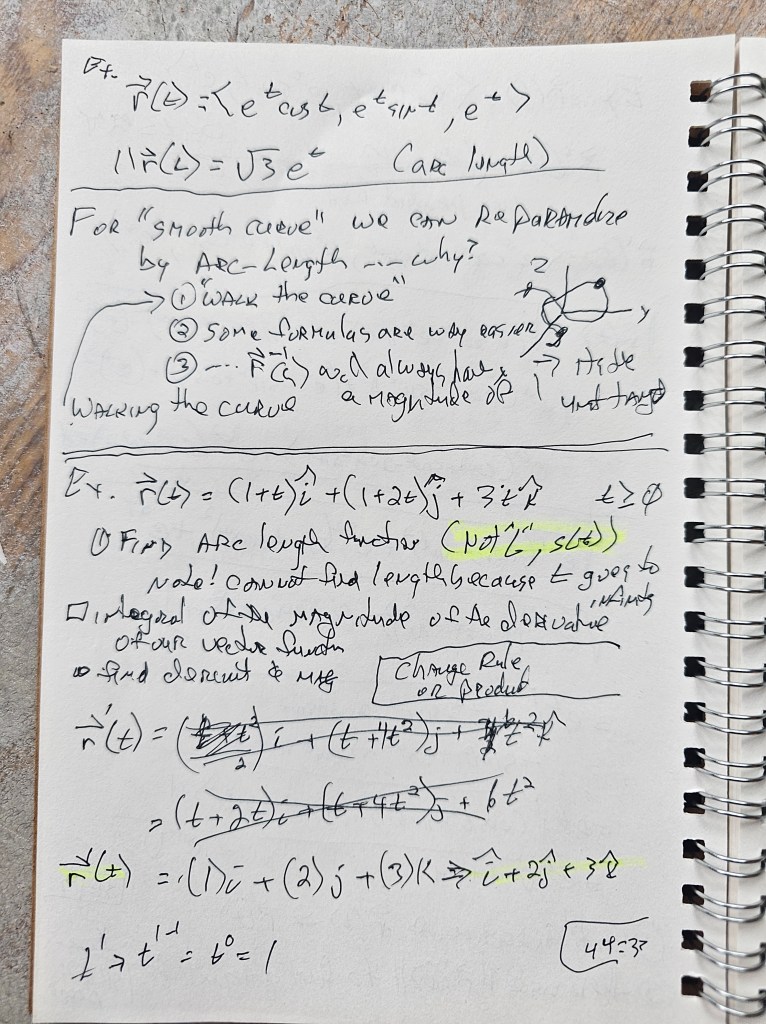 Ex.
r⃗(t) = <e^t cos t, e^t sin t, e^t>
||r⃗(t) = √3 e^t (arc length)
For "smooth curve" we can Reparamdize
by Arc-Length ---- why?
① "Walk the curve"
② Some formulas are way easier
③ --- r⃗'(s) will always have
a magnitude of 1
→ Hyde
unit tangt
Walking the curve
z
y
Ex. r⃗(t) = (1+t)î + (1+2t)ĵ + 3tk̂ t ≥ 0
① Find Arc length function (Not "L", s(t))
Note! cannot find length because t goes to
infinity
□ integral of the magnitude of the derivative
of our vector function
find & mag
Change Rule
or Product
r⃗'(t) = ( t²/2) i + (t + 4t²)j + t²k̂
= (t + 2t)i + (t + 4t²)j + 6t²
r⃗'(t) = (1)i + (2)j + (3)k ⇒ î + 2ĵ + 3k̂
t^1 → t^1-1 = t^0 = 1
44:33